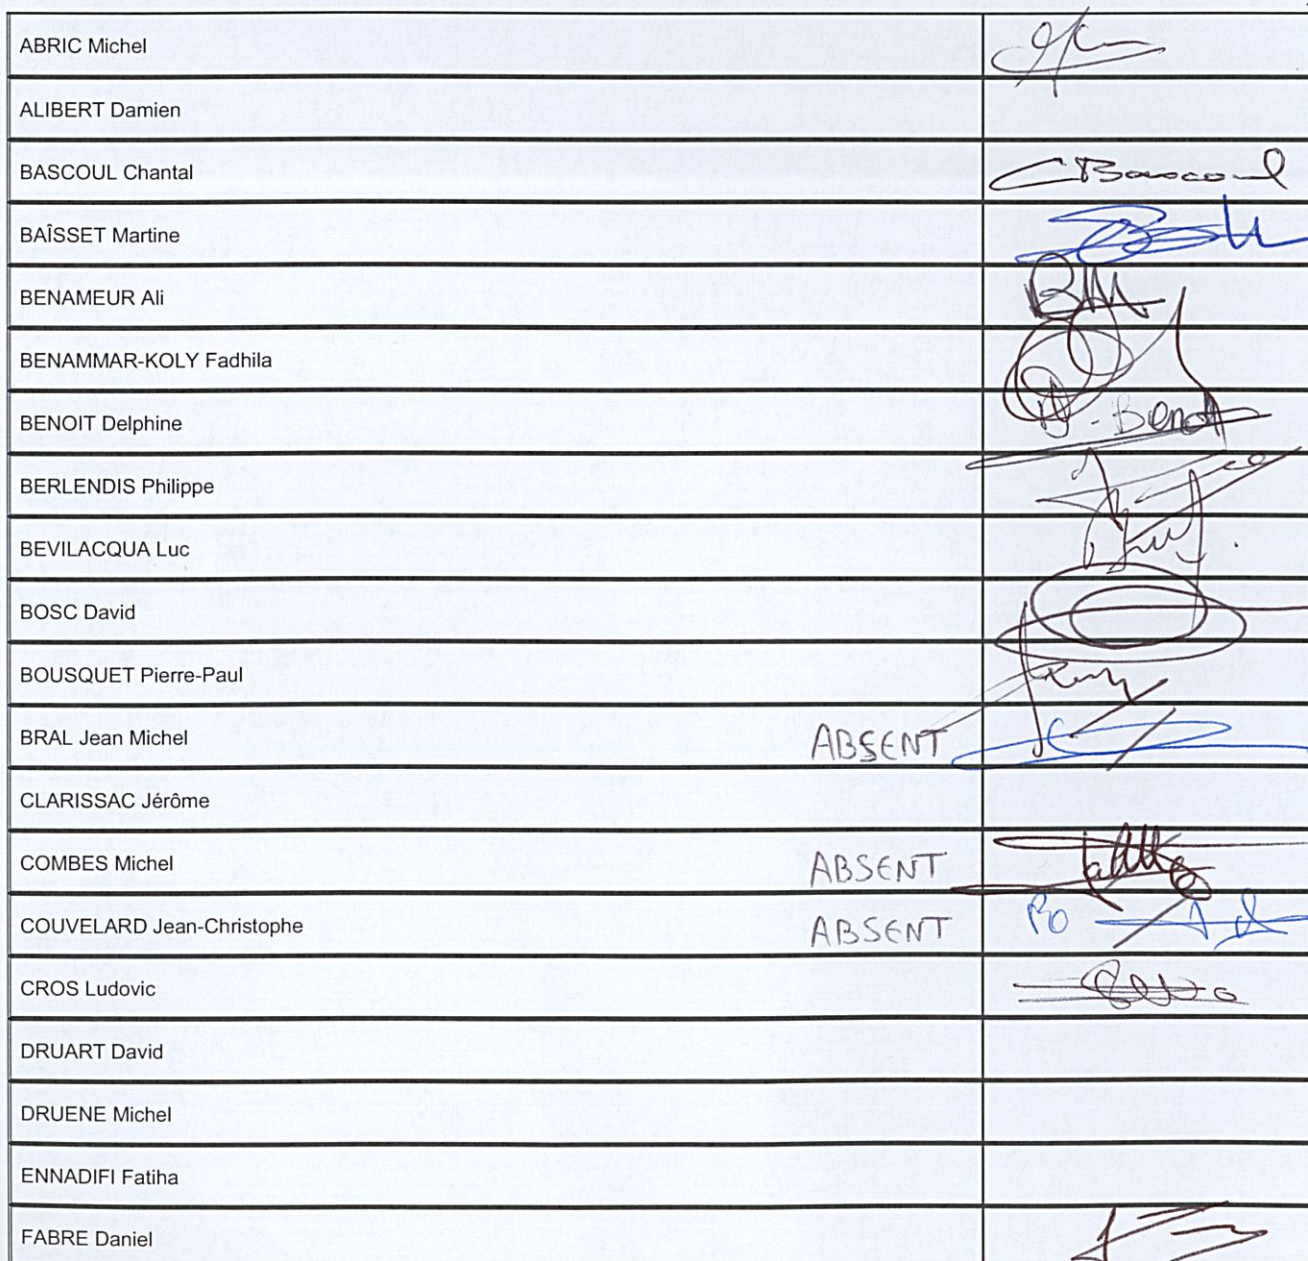 ABRIC Michel
ALIBERT Damien
BASCOUL Chantal
BAÎSSET Martine
BENAMEUR Ali
BENAMMAR-KOLY Fadhila
BENOIT Delphine
D. Benoit
BERLENDIS Philippe
BEVILACQUA Luc
BOSC David
BOUSQUET Pierre-Paul
BRAL Jean Michel ABSENT
CLARISSAC Jérôme
COMBES Michel ABSENT
COUVELARD Jean-Christophe ABSENT
CROS Ludovic
DRUART David
DRUENE Michel
ENNADIFI Fatiha
FABRE Daniel